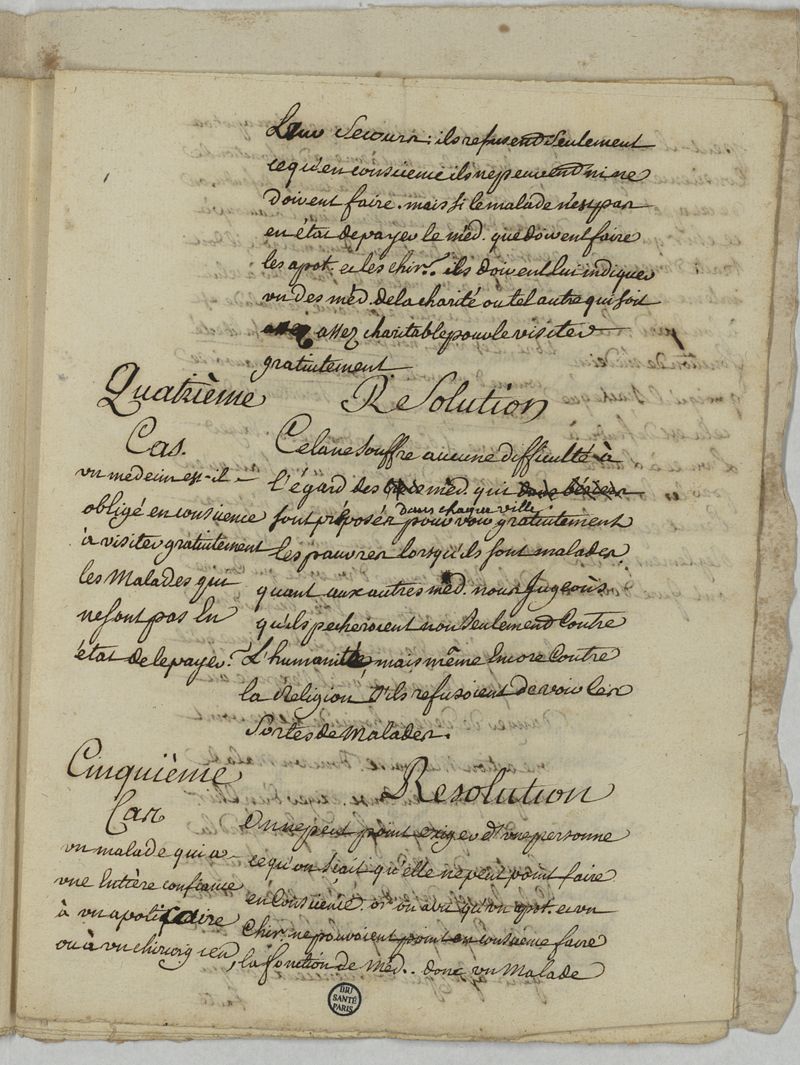 Leur Secours; ils refusent Seulement
ce qu'en conscience ils ne peuvent ni ne
doivent faire. mais si le malade n'est pas
en état de payer le méd. que doivent faire
les apot. et les chir. ils doivent lui indiquer
un des méd. de la charité ou tel autre qui soit
assez charitable pour le visiter
gratuitement
Quatrième
Cas.
un medecin est-il
obligé en conscience
à visiter gratuitement
les Malades qui
ne sont pas En
état de le payer?
Resolution
Cela ne souffre aucune difficulté à
l'égard des méd. qui
dans chaque ville
sont préposés pour voir gratuitement
les pauvres lorsqu'ils sont malades
quant aux autres méd. nous Jugeons
qu'ils pecheroient non Seulement Contre
L'humanité, mais même Encore Contre
la Religion s'ils refusoient de voir les
Sortes de Malades.
Cinquième
Cas
un malade qui a
une Entière confiance
à un apoticaire
ou à un chirurgien,
Resolution
On ne peut point exiger d'une personne
ce qu'on sçait qu'elle ne peut point faire
en Conscience. or on a vu qu'un apot. et un
Chir. ne pouvoient point en conscience faire
la fonction de Méd.. donc un Malade
BIU
SANTÉ
PARIS